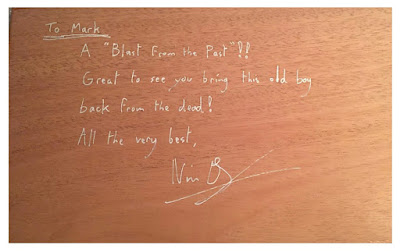 To Mark
A "Blast From the Past"!!
Great to see you bring this old boy
back from the dead!
All the very best,